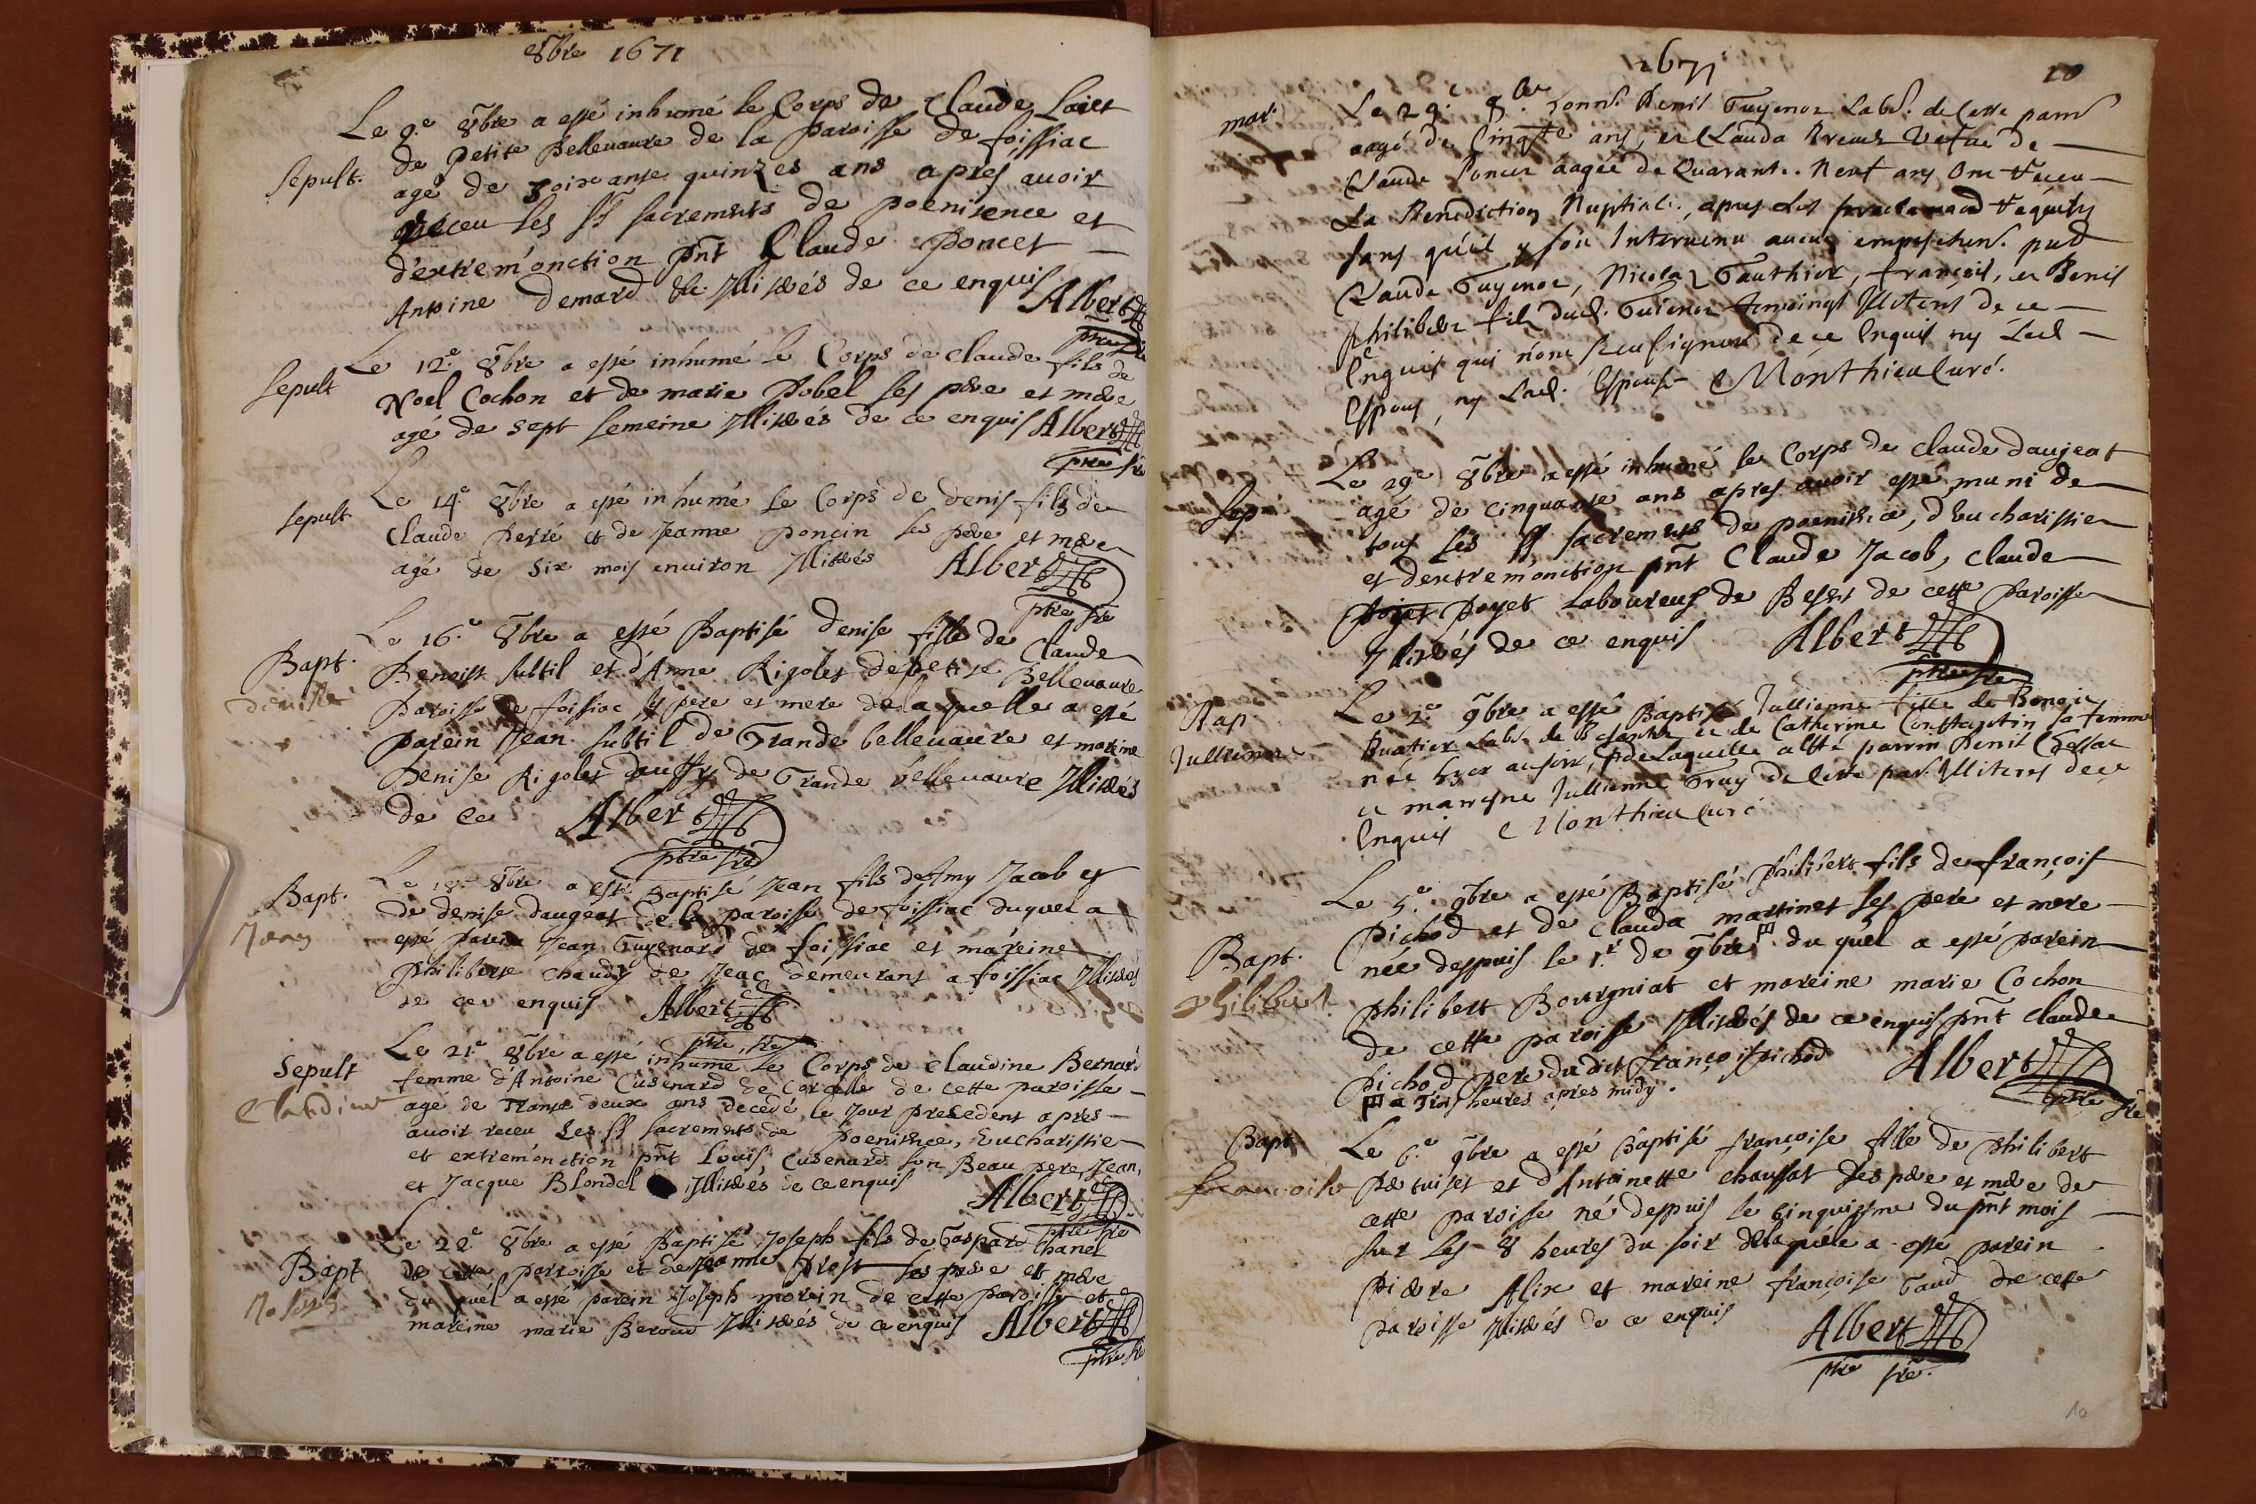 8bre 1671
Le 9.e 8bre a esté inhumé le Corps de Claude
Sepult. de petite Bellevavre de la paroisse de foissiac
agé de soixante quinzes ans aprés avoir
receu les SS sacrements de poenitence et
d'extrem'onction pnt Claude Poncet
Antoine Demard Illiterés de ce enquis Albert
ptre
Le 12.e 8bre a esté inhumé le Corps de claude fils de
Sepult Noel Cochon et de marie Pobel ses pere et mere
agé de sept semeine Illiterés de ce enquis Albert
ptre
Le 14.e 8bre a esté inhumé le Corps de denis fils de
sepult Claude Perré et de Jeanne poncin ses pere et mere
agé de six mois environ Illiterés Albert
ptre
Le 16.e 8bre a esté Baptisé Denise fille de Claude
Bapt. Benoist subtil et d'Anne Rigolet de petite Bellevavre
denise paroisse de foissiac ses pere et mere de la quelle a esté
parein Jean subtil de Grande bellevavre et mareine
Denise Rigolet de Grande bellevavre Illiterés
de ce Albert
ptre
Le 18.e 8bre a esté Baptisé Jean fils de Amy Jacob et
Bapt. de denise daugeat de la paroisse de foissiac duquel a
Jean esté parein Jean Guyenard de foissiac et mareine
Philiberte chaudy de Jeac demeurant a foissiac Illiterés
de ce enquis Albert
ptre
Le 21.e 8bre a esté inhumé le Corps de Claudine Bernard
Sepult femme d'Antoine Cusenard de Corcelle de cette paroisse
Claudine agé de Trante deux ans decedé le Jour precedent apres
avoir receu les SS sacrements de poenitence, Eucharistie
et extrem'onction pnt Louis Cusenard son Beau pere, Jean,
et Jacque Blondel Illiterés de ce enquis Albert
ptre
Le 22.e 8bre a esté Baptisé Joseph fils de Gaspard Chanel
Bapt de cette parroisse et de Jeanne Prest ses pere et mere
Joseph du quel a esté parein Joseph morin de cette paroisse et
mareine marie Beroud Illiterés de ce enquis Albert
ptre
1671
10
mar. Le 29.e 8bre honn. Denis Guyenot Lab. de cette parr
aagé de Cinqte ans, et Clauda Vefue de
Claude Poncet aagée de Quarante Neuf ans ont receu
La Benediction Nuptiale, apres les proclamaons requises
sans qu'il y soit Intervenu aucun empeschem. pnts
Claude Guyenot, Nicolas Gauthier, françois, et Denis
philibert fils dud. Guienot tesmoings Illiterés de ce
Enquis qui n'ont sceu signer de ce Enquis ny Led
Espoux, ny Lad. Espouse Monthieu Curé.
Le 29e 8bre a esté inhumé le Corps de Claude daujeat
Sep. agé de cinquante ans apres avoir esté muni de
tous les SS sacrements de poenitence, d'Eucharistie
et d'extremonction pnt Claude Jacob, Claude
Poyet Poyet Laboureurs de de cette Paroisse
Illiterés de ce enquis Albert
ptre
Bap Le 2.e 9bre a esté Baptisé Jullienne fille de
Jullienne Lab. de et de Catherine Constantin sa femme
née hyer au soir, de Laquelle a esté parrin Denis
et mareyne Jullienne de cette par. Illiteres de ce
Enquis Monthieu Curé
Le 5.e 9bre a esté Baptisé Philibert fils de françois
Pichod et de Clauda martinet ses pere et mere
Bapt. née despuis le 1.r de 9bre du quel a esté parein
philibert philibert Bourgniat et mareine marie Cochon
de cette paroisse Illiterés de ce enquis pnt claude
Pichod pere du dict françois pichod Albert
a Trois heures apres midy. ptre
Bapt Le 6.e 9bre a esté Baptisé françoise fille de Philibert
francoise et d'Antoinette chaussat ses pere et mere de
cette paroisse né despuis le cinquiesme du pnt mois
sur les 8 heures du soir de laquele a esté parein
Pierre Alix et mareine françoise Gaud de cette
paroisse Illiterés de ce enquis Albert
ptre
10